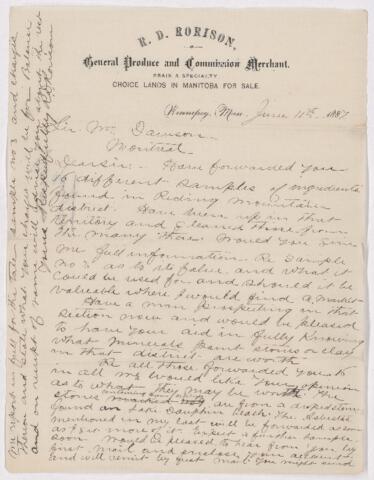 R. D. RORISON,
General Produce and Commission Merchant.
GRAIN A SPECIALTY
CHOICE LANDS IN MANITOBA FOR SALE.
Winnipeg, Man, June 11th 1887
Sir Wm Dawson
Montreal
Dear Sir: Have forwarded you
16 different samples of ingredients
found in Riding Mountain
district. Have been up in that
territory and gleaned these from
the many there. Would you give
me full information. Re Sample
No 3 as to its value and what it
could be used for and should it be
valuable where I would find a market
Have a man prospecting in that
section now and would be pleased
to have your aid in fully knowing
what minerals paint stones or clay
in that district are worth
Re all those forwarded you 16
in all would like your opinion
as to what they may be worth The
stones are from a
found on Lake Dauphin Beach. The
mentioned in my last will be forwarded as soon
as I get more of it. Expect a further sample
soon. Would be pleased to hear from you by
first mail and enclose your account
and will remit by first mail. You might send
me report in full for the value of sample No 3 and charges
thereon and state what your charges will be for Balance
and on receipt of same will advise you about the rest
Yours Respectfully R D Rorison